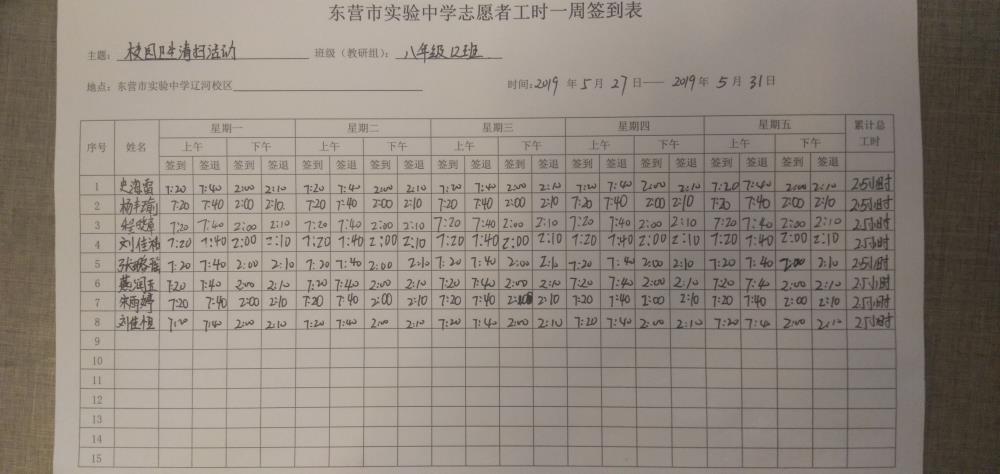 东营市实验中学志愿者工时一周签到表
主题：校园卫生清扫活动 班级（教研组）：八年级12班
地点：东营市实验中学辽河校区 时间：2019年5月27日——2019年5月31日
序号 姓名 星期一 星期二 星期三 星期四 星期五 累计总工时
上午 下午 上午 下午 上午 下午 上午 下午 上午 下午
签到 签退 签到 签退 签到 签退 签到 签退 签到 签退 签到 签退 签到 签退 签到 签退 签到 签退 签到 签退
1 史海雷 7:20 7:40 2:00 2:10 7:20 7:40 2:00 2:10 7:20 7:40 2:00 2:10 7:20 7:40 2:00 2:10 7:20 7:40 2:00 2:10 2.5小时
2 杨丰瑜 7:20 7:40 2:00 2:10 7:20 7:40 2:00 2:10 7:20 7:40 2:00 2:10 7:20 7:40 2:00 2:10 7:20 7:40 2:00 2:10 2.5小时
3 7:20 7:40 2:00 2:10 7:20 7:40 2:00 2:10 7:20 7:40 2:00 2:10 7:20 7:40 2:00 2:10 7:20 7:40 2:00 2:10 2.5小时
4 刘佳 7:20 7:40 2:00 2:10 7:20 7:40 2:00 2:10 7:20 7:40 2:00 2:10 7:20 7:40 2:00 2:10 7:20 7:40 2:00 2:10 2.5小时
5 张 7:20 7:40 2:00 2:10 7:20 7:40 2:00 2:10 7:20 7:40 2:00 2:10 7:20 7:40 2:00 2:10 7:20 7:40 2:00 2:10 2.5小时
6 燕润玉 7:20 7:40 2:00 2:10 7:20 7:40 2:00 2:10 7:20 7:40 2:00 2:10 7:20 7:40 2:00 2:10 7:20 7:40 2:00 2:10 2.5小时
7 宋雨婷 7:20 7:40 2:00 2:10 7:20 7:40 2:00 2:10 7:20 7:40 2:10 7:20 7:40 2:00 2:10 7:20 7:40 2:00 2:10 2.5小时
8 刘佳恒 7:20 7:40 2:00 2:10 7:20 7:40 2:00 2:10 7:20 7:40 2:00 2:10 7:20 7:40 2:00 2:10 7:20 7:40 2:00 2:10 2.5小时
9
10
11
12
13
14
15